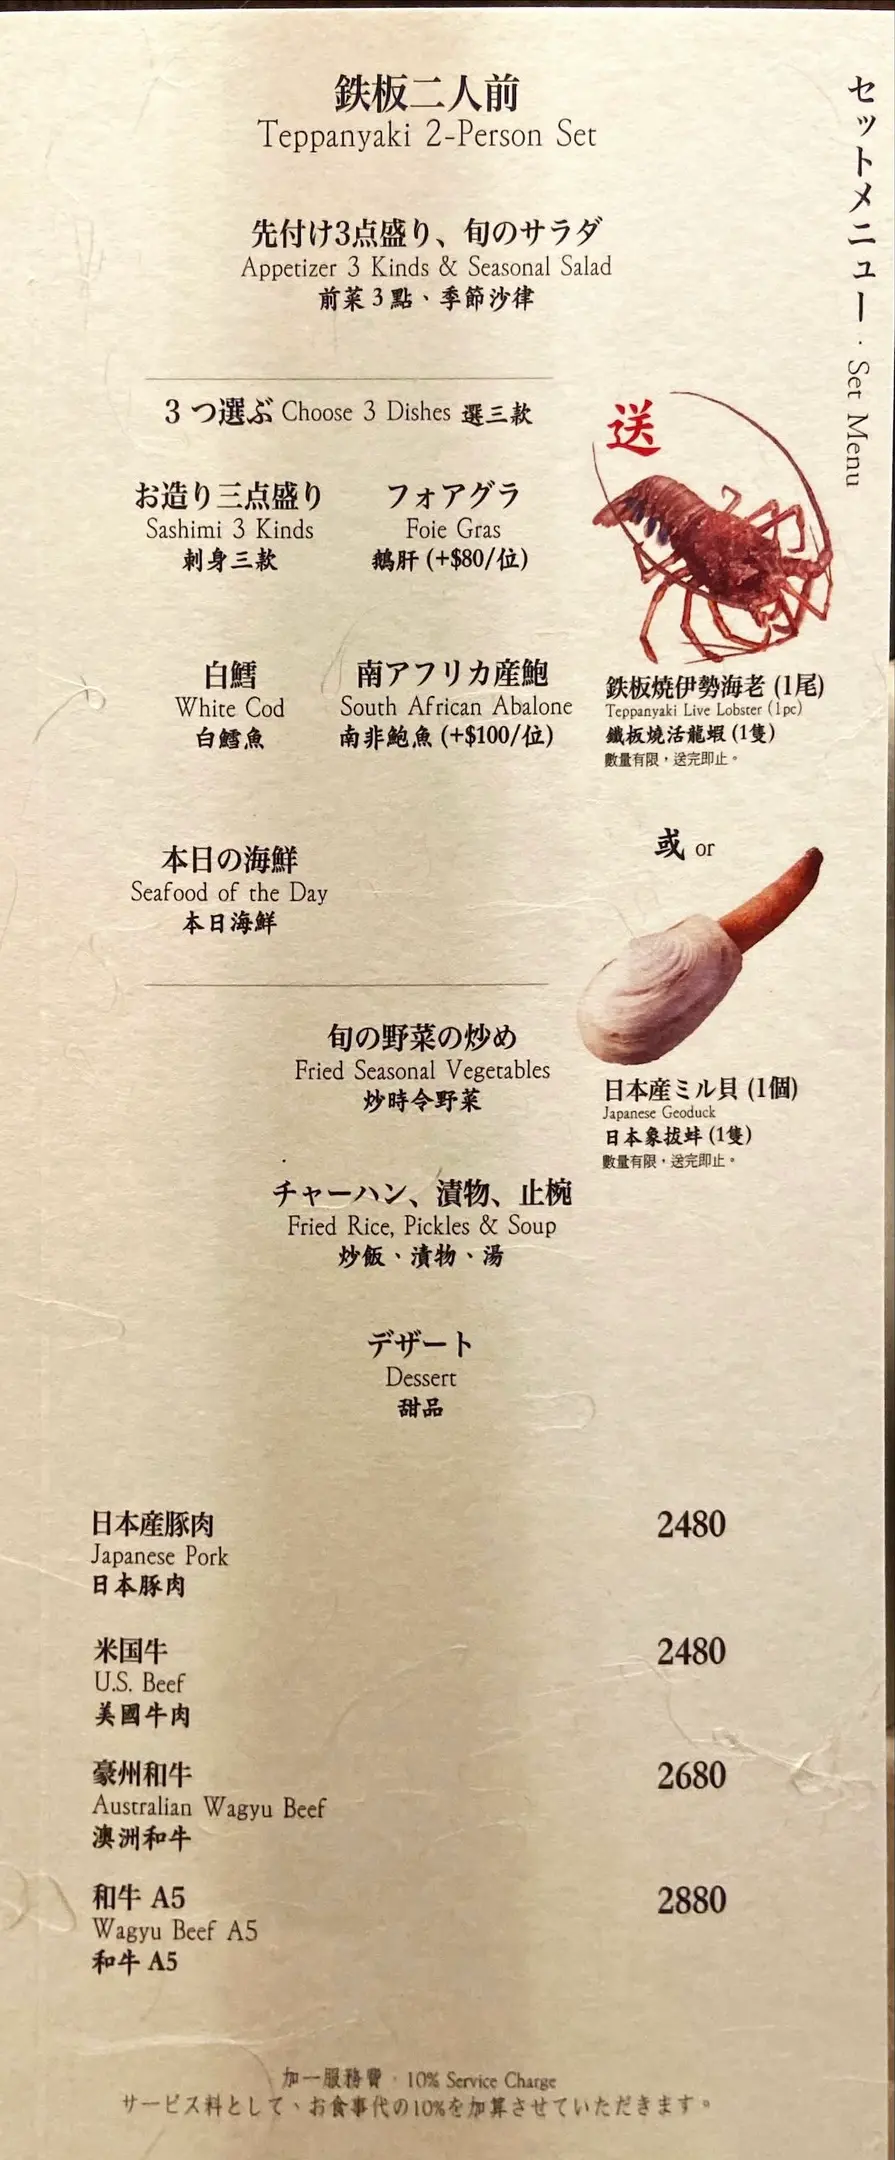 鉄板二人前
Teppanyaki 2-Person Set
先付け3点盛り、旬のサラダ
Appetizer 3 Kinds & Seasonal Salad
前菜3點、季節沙律
3つ選ぶ Choose 3 Dishes 選三款
お造り三点盛り
Sashimi 3 Kinds
刺身三款
フォアグラ
Foie Gras
鵝肝 (+$80/位)
白鱈
White Cod
白鱈魚
南アフリカ産鮑
South African Abalone
南非鮑魚 (+$100/位)
本日の海鮮
Seafood of the Day
本日海鮮
旬の野菜の炒め
Fried Seasonal Vegetables
炒時令野菜
チャーハン、漬物、止椀
Fried Rice, Pickles & Soup
炒飯、漬物、湯
デザート
Dessert
甜品
セットメニュー · Set Menu
送
鉄板焼伊勢海老 (1尾)
Teppanyaki Live Lobster (1pc)
鐵板燒活龍蝦 (1隻)
數量有限，送完即止。
或 or
日本産ミル貝 (1個)
Japanese Geoduck
日本象拔蚌 (1隻)
數量有限，送完即止。
日本産豚肉 2480
Japanese Pork
日本豚肉
米国牛 2480
U.S. Beef
美國牛肉
豪州和牛 2680
Australian Wagyu Beef
澳洲和牛
和牛 A5 2880
Wagyu Beef A5
和牛 A5
加一服務費 · 10% Service Charge
サービス料として、お食事代の10%を加算させていただきます。